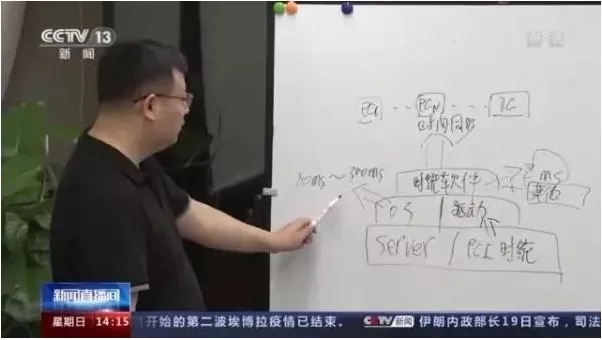 CCTV 13
新闻
PCN
TC
时间同步
10ms~300ms
时统软件
2ms
OS
Server / PCI 时统
新闻直播间
星期日 14:15
开始的第二波埃博拉疫情已结束。
CCTV 新闻
伊朗内政部长19日宣布，司法